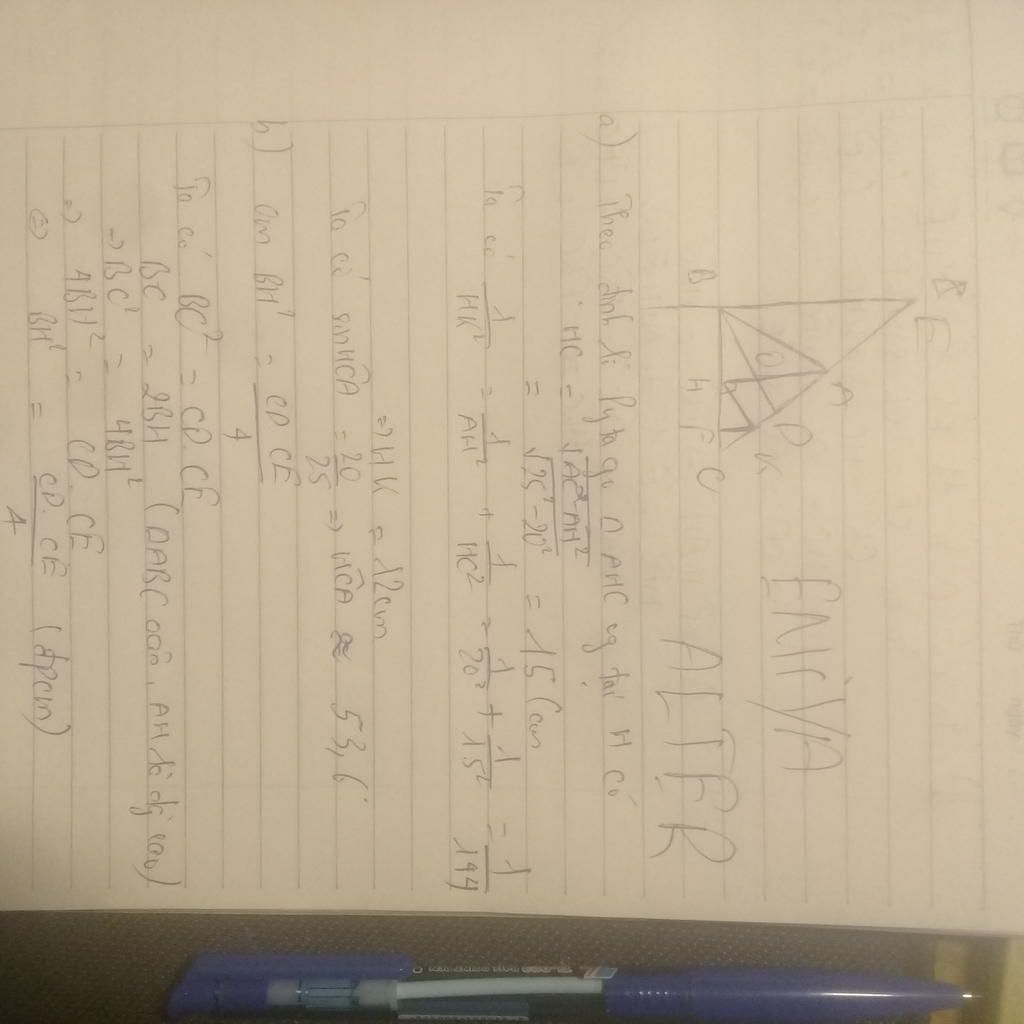 E
A
D
O
K
B H F C
ENIYA
ALTER
a) Theo định lí Pytago Δ AHC vg tại H có
HC = √AC²-AH²
= √25²-20² = 15 (cm
Ta có 1/HK² = 1/AH² + 1/HC² = 1/20² + 1/15² = 1/144
=> HK = 12cm
Ta có sin HCA = 20/25 => HCA ≈ 53,6
b) cm BH² = CD.CE/4
Ta có BC² = CD.CE
BC = 2BH (ΔABC cân, AH là đg cao)
=> BC² = 4BH²
=> 4BH² = CD.CE
=> BH² = CD.CE/4 (đpcm)